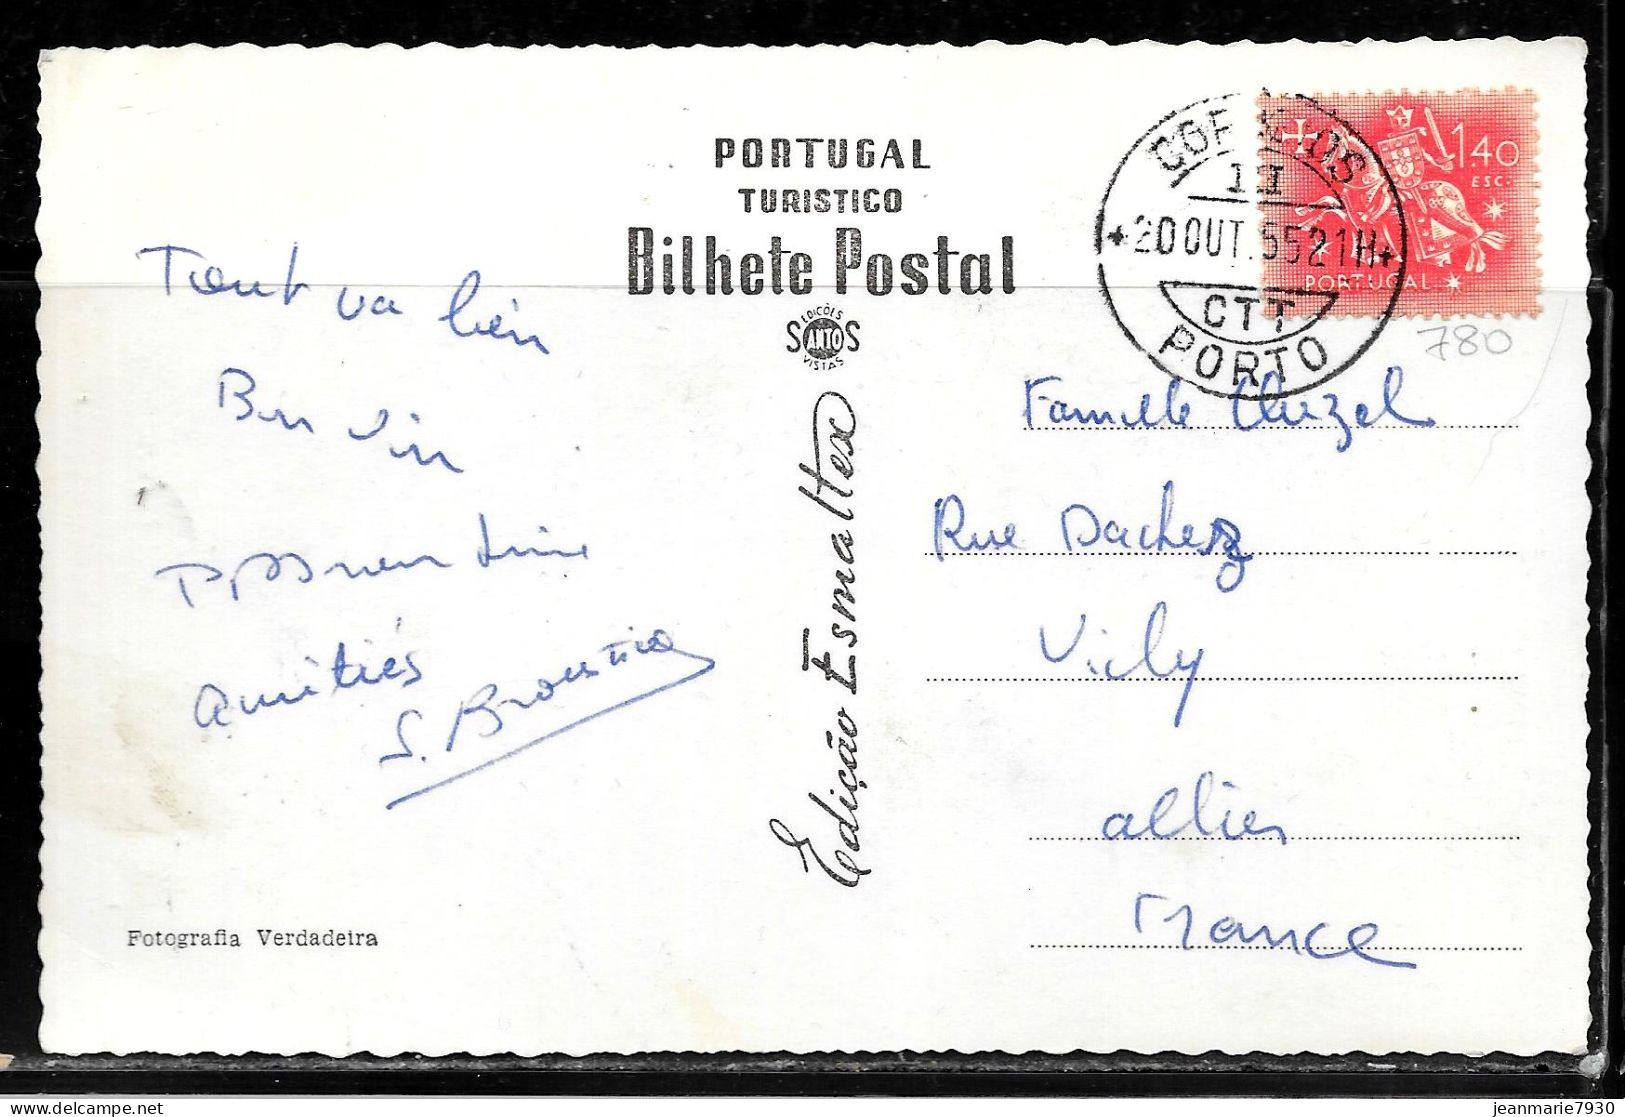 PORTUGAL
TURISTICO
Bilhete Postal
EDIÇÕES
SANTOS
VISTAS
Edição Esmaltex
CORREIOS
20 OUT. 55 21H
CTT
PORTO
1.40
ESC.
PORTUGAL
780
Tout va bien
Bon vin
amitiés
Famille
Rue
Vichy
allier
France
Fotografia Verdadeira
jeanmarie7930